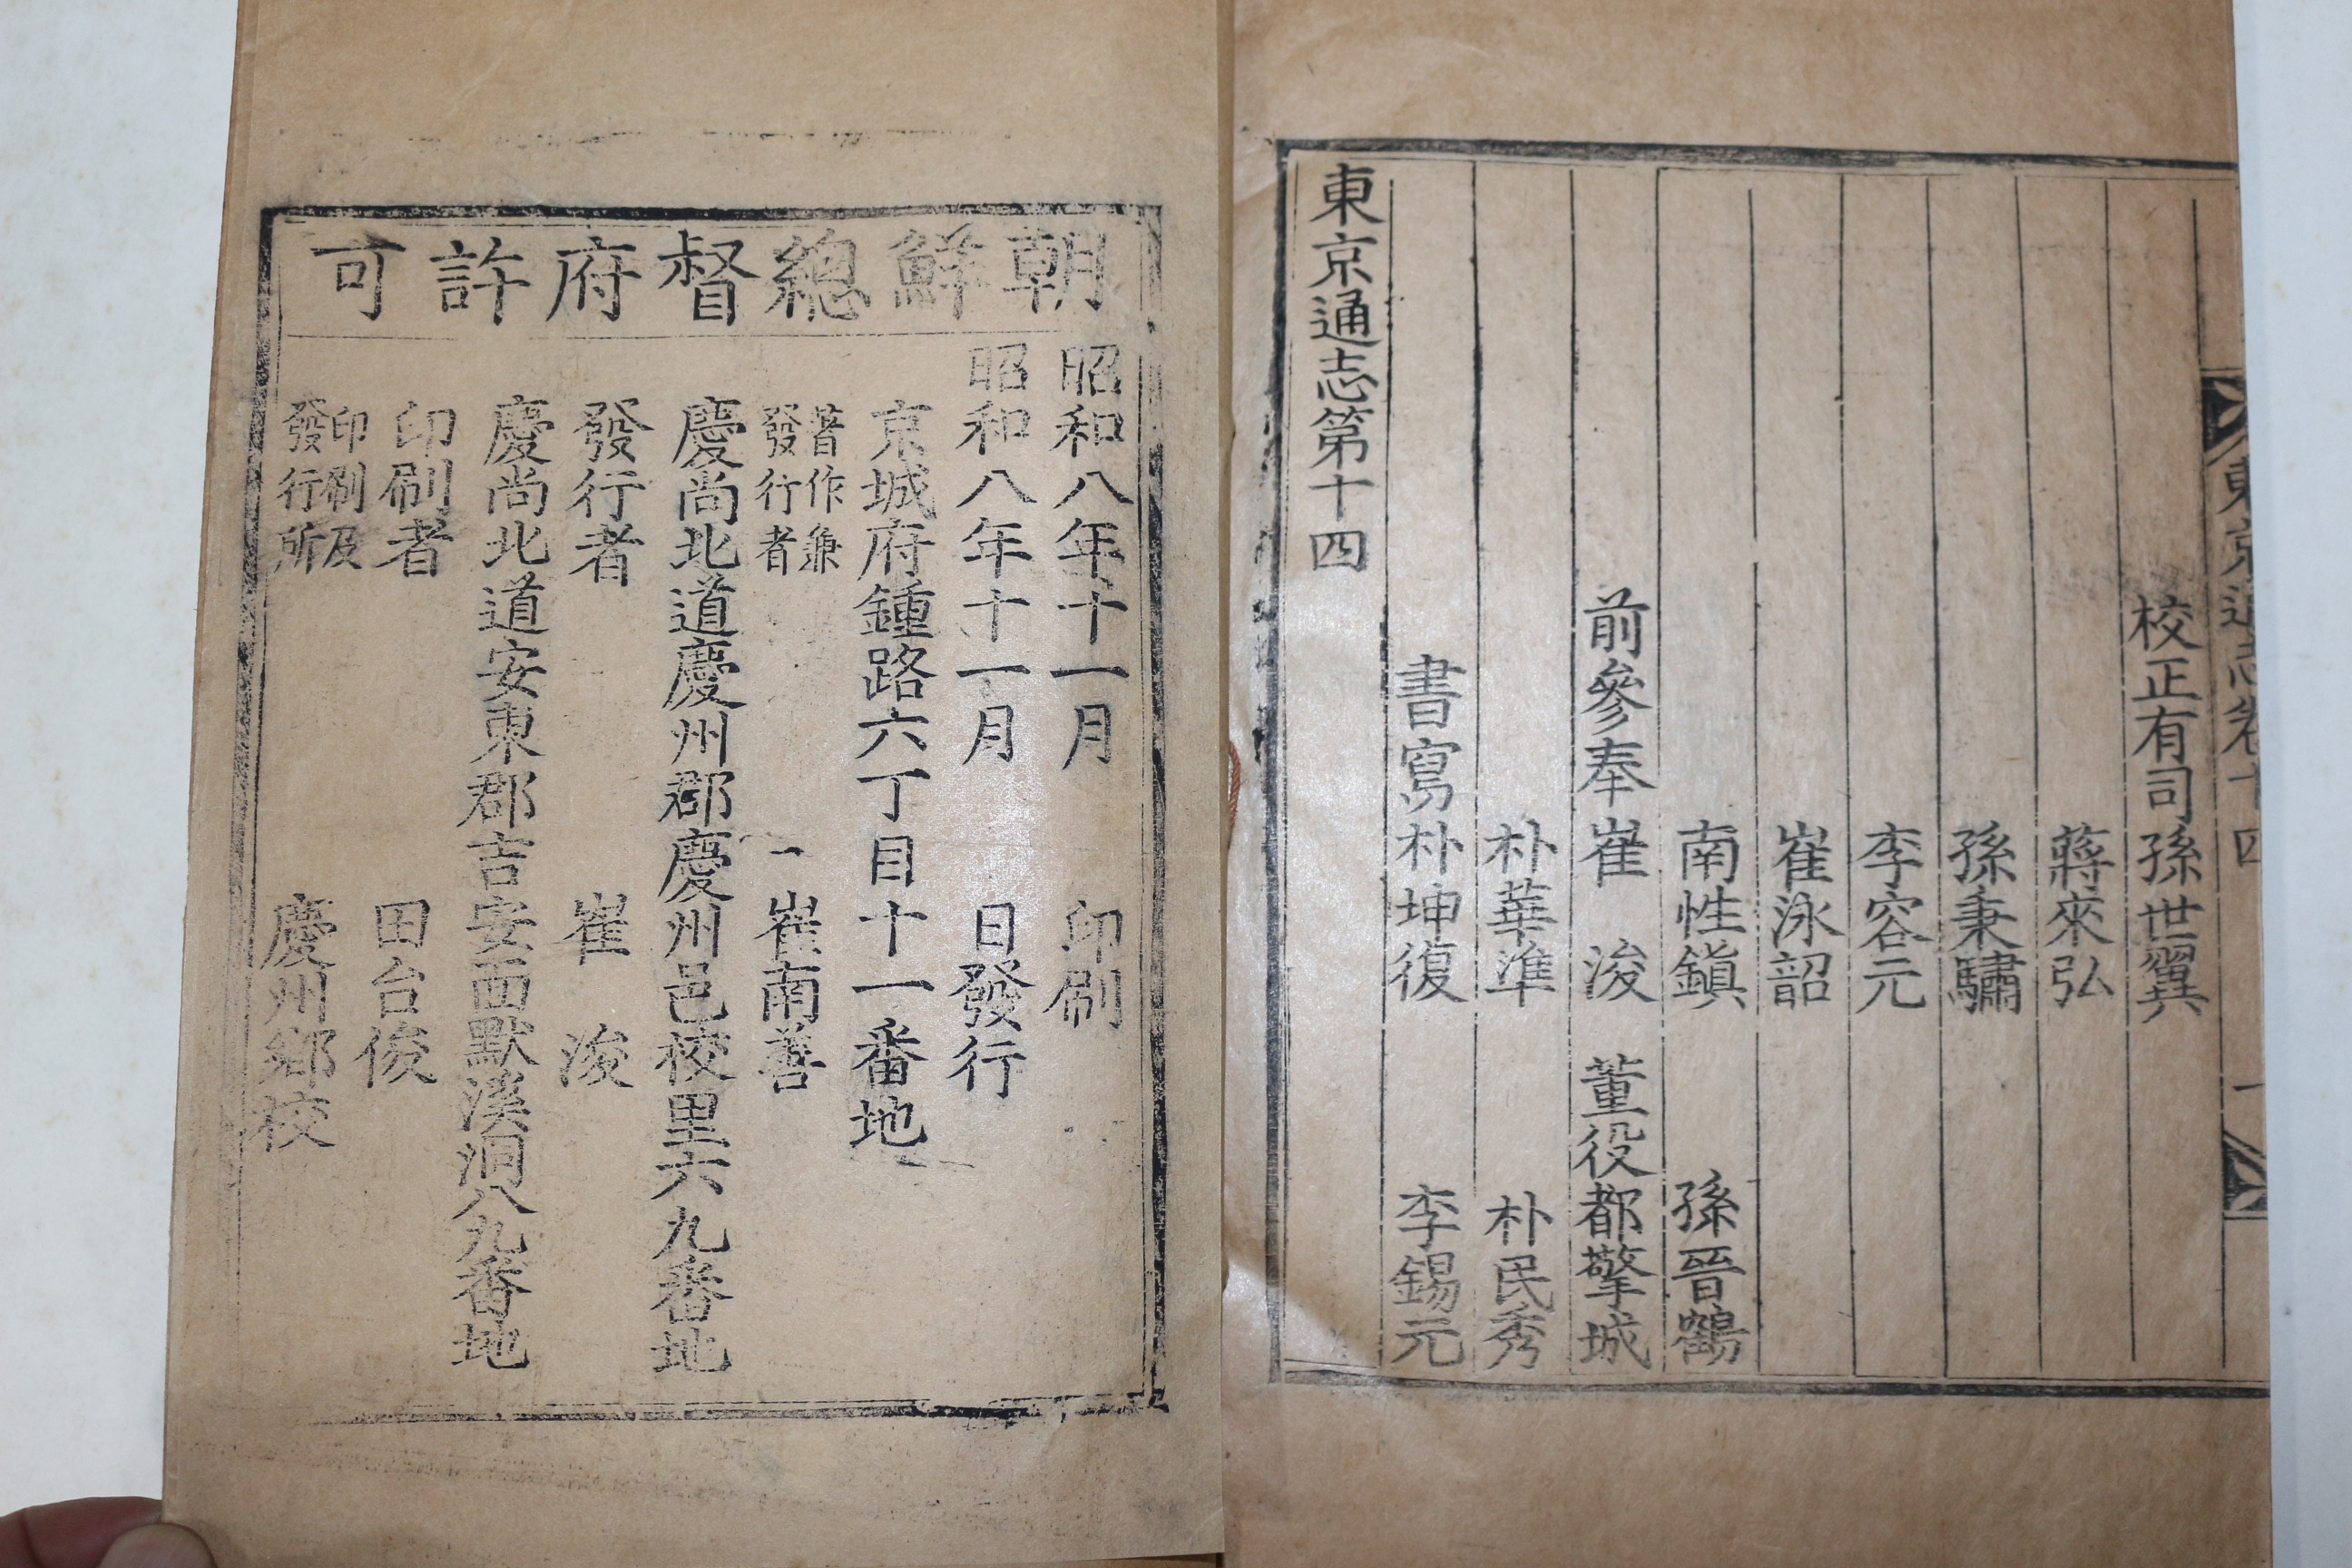 東京通志卷十四
一
校正有司孫世翼
蔣來弘
孫秉驌
李容元
崔泳韶
南性鎭 孫晉鶴
前參奉崔 浚 董役都擎城
朴華準 朴民秀
書寫朴坤復 李錫元
東京通志第十四
朝鮮總督府許可
昭和八年十一月 印刷
昭和八年十一月 日發行
京城府鍾路六丁目十一番地
著作兼
發行者 崔南善
慶尚北道慶州郡慶州邑校里六九番地
發行者 崔 浚
慶尚北道安東郡吉安面默溪洞八九番地
印刷者 田台俊
印刷及
發行所 慶州鄉校